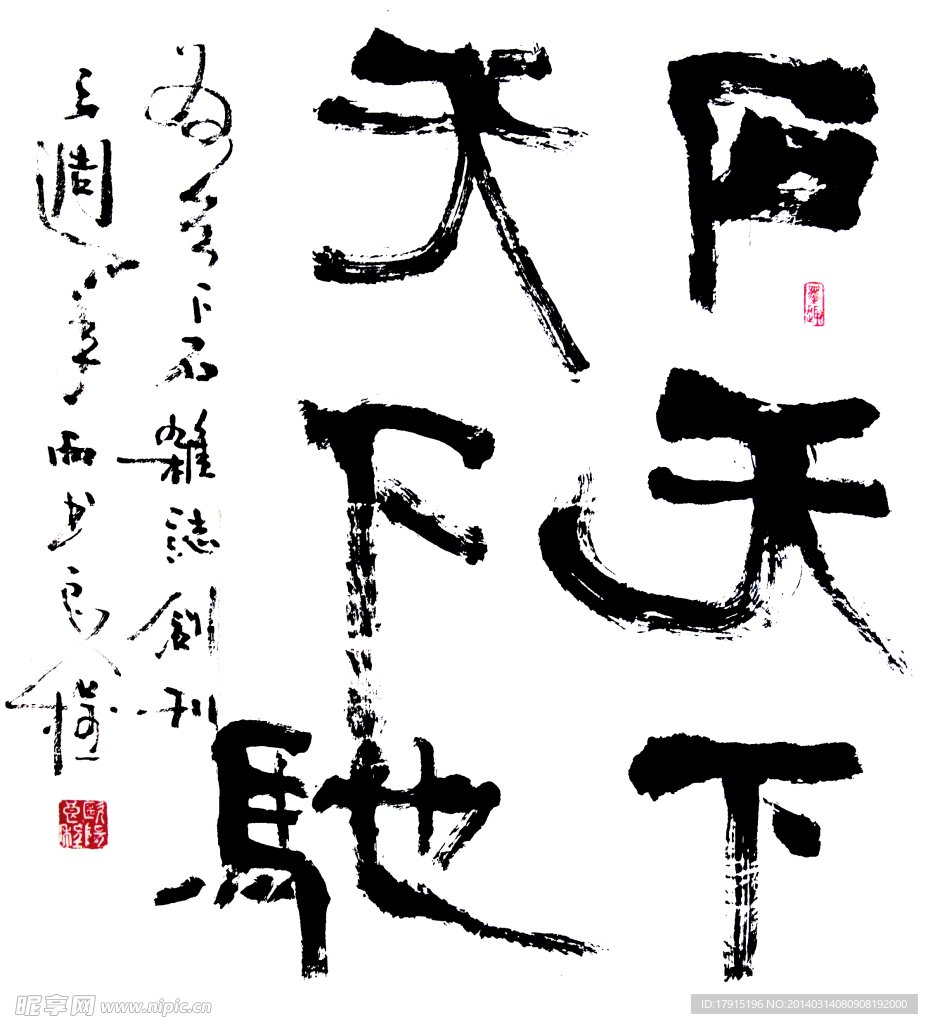 石天下
天下馳
為天下石雜誌創刊
三週年而書
昵享网 www.nipic.cn
ID:17915196 NO:20140314080908192000